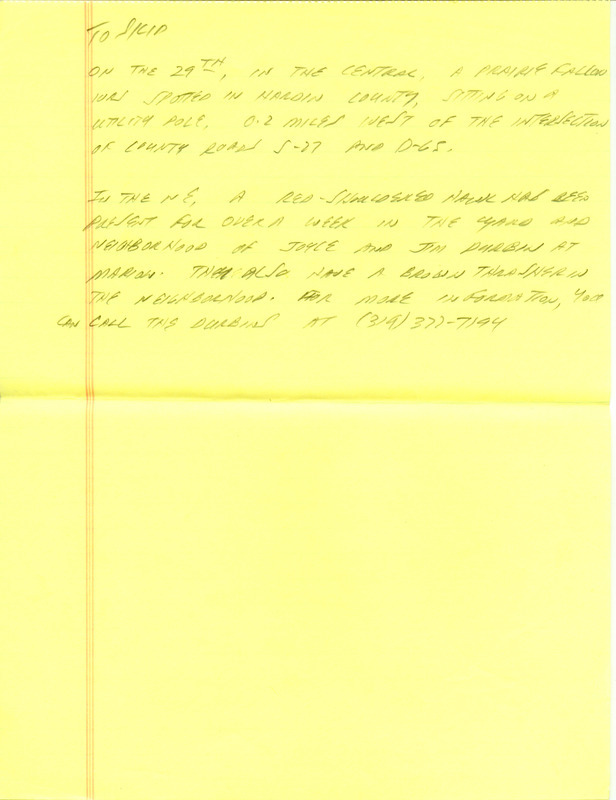 TO SKIP
ON THE 29TH, IN THE CENTRAL, A PRAIRIE FALCON
WAS SPOTTED IN HARDIN COUNTY, SITTING ON A
UTILITY POLE, 0.2 MILES WEST OF THE INTERSECTION
OF COUNTY ROADS S-27 AND D-65.
IN THE NE, A RED-SHOULDERED HAWK HAS BEEN
PRESENT FOR OVER A WEEK IN THE YARD AND
NEIGHBORHOOD OF JOYCE AND JIM DURBIN AT
MARION. THEY ALSO HAVE A BROWN THRASHER IN
THE NEIGHBORHOOD. FOR MORE INFORMATION, YOU
CAN CALL THE DURBINS AT (319) 377-7194